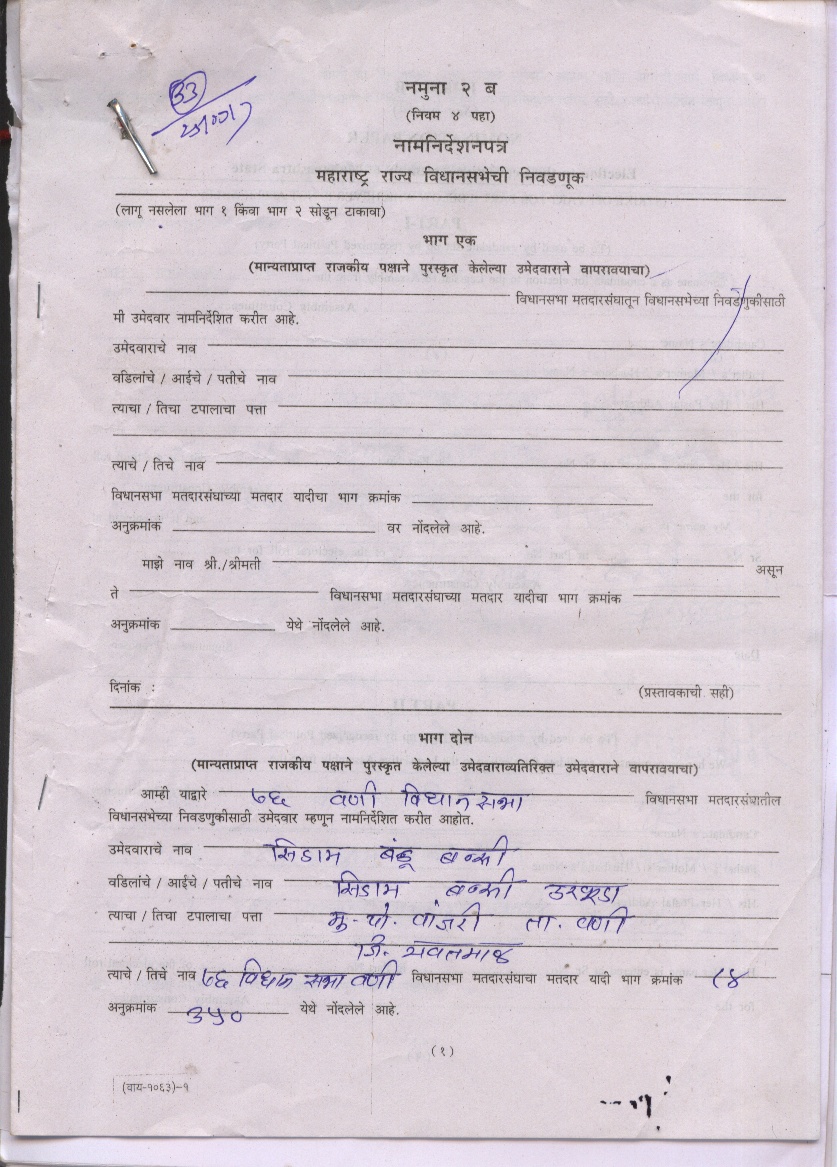 33
नमुना २ ब
(नियम ४ पहा)
नामनिर्देशनपत्र
महाराष्ट्र राज्य विधानसभेची निवडणूक
(लागू नसलेला भाग १ किंवा भाग २ सोडून टाकावा)
भाग एक
(मान्यताप्राप्त राजकीय पक्षाने पुरस्कृत केलेल्या उमेदवाराने वापरावयाचा)
विधानसभा मतदारसंघातून विधानसभेच्या निवडणुकीसाठी
मी उमेदवार नामनिर्देशित करीत आहे.
उमेदवाराचे नाव
वडिलांचे / आईचे / पतीचे नाव
त्याचा / तिचा टपालाचा पत्ता
त्याचे / तिचे नाव
विधानसभा मतदारसंघाच्या मतदार यादीचा भाग क्रमांक
अनुक्रमांक वर नोंदलेले आहे.
माझे नाव श्री./श्रीमती असून
ते विधानसभा मतदारसंघाच्या मतदार यादीचा भाग क्रमांक
अनुक्रमांक येथे नोंदलेले आहे.
दिनांक : (प्रस्तावकाची सही)
भाग दोन
(मान्यताप्राप्त राजकीय पक्षाने पुरस्कृत केलेल्या उमेदवाराव्यतिरिक्त उमेदवाराने वापरावयाचा)
आम्ही याद्वारे ७६ वणी विधान सभा विधानसभा मतदारसंघातील
विधानसभेच्या निवडणुकीसाठी उमेदवार म्हणून नामनिर्देशित करीत आहोत.
उमेदवाराचे नाव सिडाम बंडू
वडिलांचे / आईचे / पतीचे नाव सिडाम
त्याचा / तिचा टपालाचा पत्ता मु. पो. वांजरी ता. वणी
जि. यवतमाळ
त्याचे / तिचे नाव ७६ विधान सभा वणी विधानसभा मतदारसंघाचा मतदार यादी भाग क्रमांक १४
अनुक्रमांक ३५० येथे नोंदलेले आहे.
(१)
(वाय-१०६३)-१